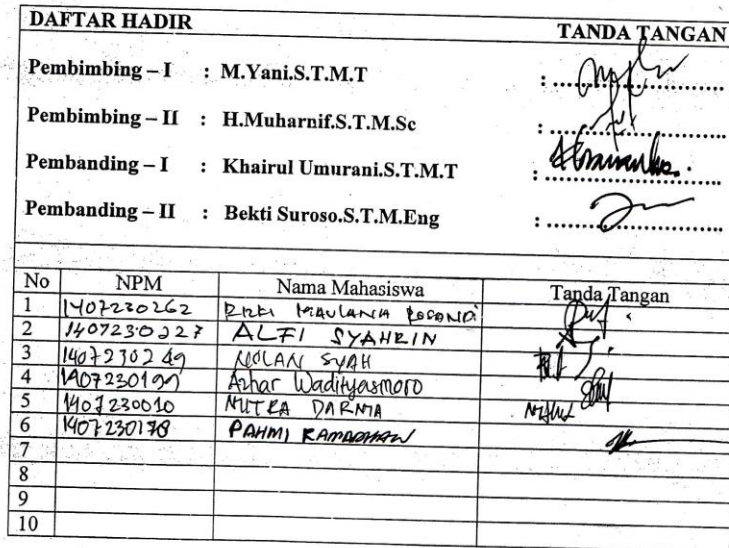 DAFTAR HADIR TANDA TANGAN
Pembimbing – I : M.Yani.S.T.M.T : ....................
Pembimbing – II : H.Muharnif.S.T.M.Sc : ....................
Pembanding – I : Khairul Umurani.S.T.M.T : ....................
Pembanding – II : Bekti Suroso.S.T.M.Eng : ....................
No NPM Nama Mahasiswa Tanda Tangan
1 1407230262 RIZKI MAULANA
2 1407230227 ALFI SYAHRIN
3 1407230249 SYAH
4 1407230199 Azhar Wadityasmoro
5 1407230010 MUTRA DARMA
6 1407230178 PAHMI RAMADHAN
7
8
9
10